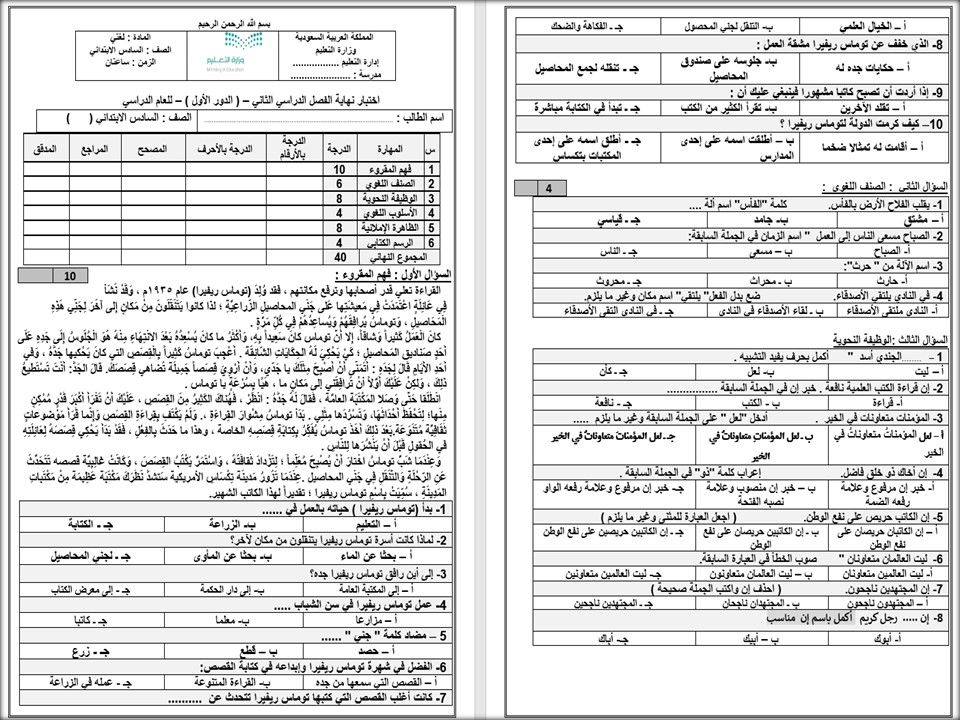 بسم الله الرحمن الرحيم
المملكة العربية السعودية
وزارة التعليم
إدارة التعليم ..................
مدرسة : ......................
وزارة التعليم
Ministry of Education
المادة : لغتي
الصف : السادس الابتدائي
الزمن : ساعتان
اختبار نهاية الفصل الدراسي الثاني – ( الدور الأول ) – للعام الدراسي
اسم الطالب : ............................ الصف : السادس الابتدائي ( )
س المهارة الدرجة الدرجة بالأرقام الدرجة بالأحرف المصحح المراجع المدقق
1 فهم المقروء 10
2 الصنف اللغوي 6
3 الوظيفة النحوية 8
4 الأسلوب اللغوي 4
5 الظاهرة الإملائية 8
6 الرسم الكتابي 4
المجموع النهائي 40
السؤال الأول : فهم المقروء : 10
القراءة تعلي قدر أصحابها وترفع مكانتهم ، فقد وُلِدَ (توماس ريفيرا) عام ١٩٣٥م ، وَقَدْ نَشَأَ
فِي عَائِلَةٍ اعْتَمَدَتْ فِي مَعِيشَتِهَا عَلَى جَنْيِ المحاصيلِ الزراعِيَّةِ ؛ لذا كانوا يَتَنَقَّلُونَ مِنْ مَكَانٍ إلى آخَرَ لِجَنْيِ هَذِهِ
المَحَاصِيلِ ، وتوماسُ يُرَافِقُهُمْ وَيُسَاعِدُهُمْ فِي كُلِّ مَرَّةٍ .
كانَ العَمَلُ كَثِيراً وَشَاقاً، إلا أنَّ توماس كَانَ سَعِيداً بِهِ، وأكثَرُ ما كانَ يُسعِدُهُ بَعْدَ الانْتِهَاءِ مِنْهُ هُوَ الجُلُوسُ إلى جَدِهِ عَلَى
أحَدِ صناديقِ المَحَاصِيلِ ؛ كَيْ يَحْكِيَ لَهُ الحِكَايَاتِ الشَّائِقَةَ . أُعْجِبَ توماسُ كَثِيراً بِالقِصَصِ التي كَانَ يَحْكِيها جَدُهُ ، وَفِي
أَحَدِ الأَيَّامِ قَالَ لِجَدِهِ : أَتَمَنَّى أنْ أُصْبِحَ مِثْلَكَ يا جَدِي، وَأنْ أَرْوِيَ قِصَصاً جَمِيلَةً تُضَاهِي قِصَصَكَ. قَالَ الجَدُ: أنْتَ تَسْتَطِيعُ
ذَلِكَ ، وَلكِنْ عَلَيْكَ أَوَّلاً أَنْ تُرافِقَنِي إلى مَكَانٍ ما ، هَيَّا بِسُرْعَةٍ يا توماس .
انْطَلَقا حَتَّى وَصَلا المَكْتَبَةَ العامَّةَ ، فَقَالَ لَهُ جَدُهُ : انْظُرْ ، فَهُنَاكَ الكَثِيرُ مِنَ القِصَصِ ، عَلَيْكَ أَنْ تَقْرَأَ أَكْبَرَ قَدْرٍ مُمْكِنٍ
مِنْها؛ لِتَحْفَظَ أَحْدَاثَهَا، وَتَسْرُدَها مِثْلِي . بَدَأَ توماسُ مِشْوَارَ القِرَاءَةِ ،. وَلَمْ يَكْتَفِ بِقِراءَةِ القِصَصِ وَإِنَّما قَرَأَ مَوْضُوعَاتٍ
ثَقَافِيَّةً مُتَنَوِّعَةً.بَعْدَ ذلكَ أَخَذَ توماسُ يُفَكِّرُ بِكِتابَةِ قِصَصِهِ الخاصة ، وهذا ما حَدَثَ بِالفِعْلِ ، فَقَدْ بَدَأَ يَحْكِي قِصَصَهُ لِعَائِلَتِهِ
فِي الحُقُولِ قَبْلَ أَنْ يَنْشُرَهَا لِلنَّاسِ .
وَعِنْدَمَا شَبَّ توماسُ اخْتَارَ أَنْ يُصْبِحَ مُعَلِّماً ؛ لِتَزْدَادَ ثَقَافَتُهُ ، وَاسْتَمَرَّ يَكْتُبُ القِصَصَ ، وَكَانَتْ غَالِبِيَّةُ قصصه تَتَحَدَّثُ
عَنِ الرِّحْلَةِ وَالتَّنَقُّلِ فِي جَنْيِ المحاصيل .عِنْدَمَا تَزُورُ مَدِينَةَ تِكْسَاسِ الأمريكية ستشدُ نَظَرَكَ مَكْتَبَةٌ عَظِيمَةٌ مِنْ مَكْتَبَاتِ
المَدِينَةِ ، سُمِّيَتْ بِاسْمِ توماس ريفيرا ؛ تقديراً لهذا الكاتب الشهير.
1- بدأ (توماس ريفيرا ) حياته بالعمل في ......
أ – التعليم ب- الزراعة جـ - الكتابة
2- لماذا كانت أسرة توماس ريفيرا يتنقلون من مكان لآخر؟
أ – بحثا عن الماء ب- بحثا عن المأوى جـ - لجني المحاصيل
3- إلى أين رافق توماس ريفيرا جده؟
أ - إلى المكتبة العامة ب- إلى دار الحكمة جـ - إلى معرض الكتاب
4- عمل توماس ريفيرا في سن الشباب .....
أ – مزارعا ب- معلما جـ - كاتبا
5 – مضاد كلمة " جني " ......
أ – حصد ب – قطع جـ - زرع
6- الفضل في شهرة توماس ريفيرا وإبداعه في كتابة القصص:
أ – القصص التي سمعها من جده ب- القراءة المتنوعة جـ - عمله في الزراعة
7- كانت أغلب القصص التي كتبها توماس ريفيرا تتحدث عن ..........
أ – الخيال العلمي ب- التنقل لجني المحصول جـ - الفكاهة والضحك
8- الذي خفف عن توماس ريفيرا مشقة العمل :
أ – حكايات جده له ب- جلوسه على صندوق المحاصيل جـ - تنقله لجمع المحاصيل
9- إذا أردت أن تصبح كاتبا مشهورا فينبغي عليك أن :
أ – تقلد الآخرين ب- تقرأ الكثير من الكتب جـ - تبدأ في الكتابة مباشرة
10– كيف كرمت الدولة لتوماس ريفيرا ؟
أ – أقامت له تمثالا ضخما ب – أطلقت اسمه على إحدى المدارس جـ - أطلق اسمه على إحدى المكتبات بتكساس
السؤال الثاني : الصنف اللغوي : 4
1- يقلب الفلاح الأرض بالفأس. كلمة "الفأس" اسم آلة ....
أ – مشتق ب- جامد جـ - قياسي
2- الصباح مسعى الناس إلى العمل " اسم الزمان في الجملة السابقة:
أ- الصباح ب – مسعى جـ - الناس
3- اسم الآلة من " حرث":
أ - حارث ب - محراث جـ - محروث
4- في النادي يلتقي الأصدقاء. ضع بدل الفعل" يلتقي" اسم مكان وغير ما يلزم.
أ- النادي ملتقى الأصدقاء ب - لقاء الأصدقاء في النادى جـ - في النادي التقى الأصدقاء
السؤال الثالث :الوظيفة النحوية
1 – ........الجندي أسد " أكمل بحرف يفيد التشبيه .
أ – ليت ب- لعل جـ - كأن
2- إن قراءة الكتب العلمية نافعة . خبر إن في الجملة السابقة ................
أ - قراءة ب - الكتب جـ - نافعة
3- المؤمنات متعاونات في الخير . أدخل "لعل " على الجملة السابقة وغير ما يلزم .....
أ – لعل المؤمناتُ متعاوناتٌ في الخير ب - لعل المؤمناتِ متعاوناتٌ في الخير جـ - لعل المؤمناتَ متعاوناتٌ في الخير
4- إن أخاك ذو خلق فاضل. إعراب كلمة "ذو" في الجملة السابقة .
أ- خبر إن مرفوع وعلامة رفعه الضمة ب – خبر إن منصوب وعلامة نصبه الفتحة جـ- خبر إن مرفوع وعلامة رفعه الواو
5- إن الكاتب حريص على نفع الوطن. ( اجعل العبارة للمثنى وغير ما يلزم )
أ – إن الكاتبان حريصان على نفع الوطن ب - إن الكاتبين حريصان على نفع الوطن جـ - إن الكاتبين حريصين على نفع الوطن
6- ليت العالمان متعاونان " صوب الخطأ في العبارة السابقة.
أ- ليت العالمين متعاونان ب – ليت العالمان متعاونون جـ- ليت العالمين متعاونين
7- إن المجتهدين ناجحون. ( احذف إن واكتب الجملة صحيحة )
أ – المجتهدون ناجحون ب - المجتهدان ناجحان جـ - المجتهدين ناجحين
8- إن ..... رجل كريم أكمل باسم إن مناسب
أ- أبوك ب – أبيك جـ- أباك